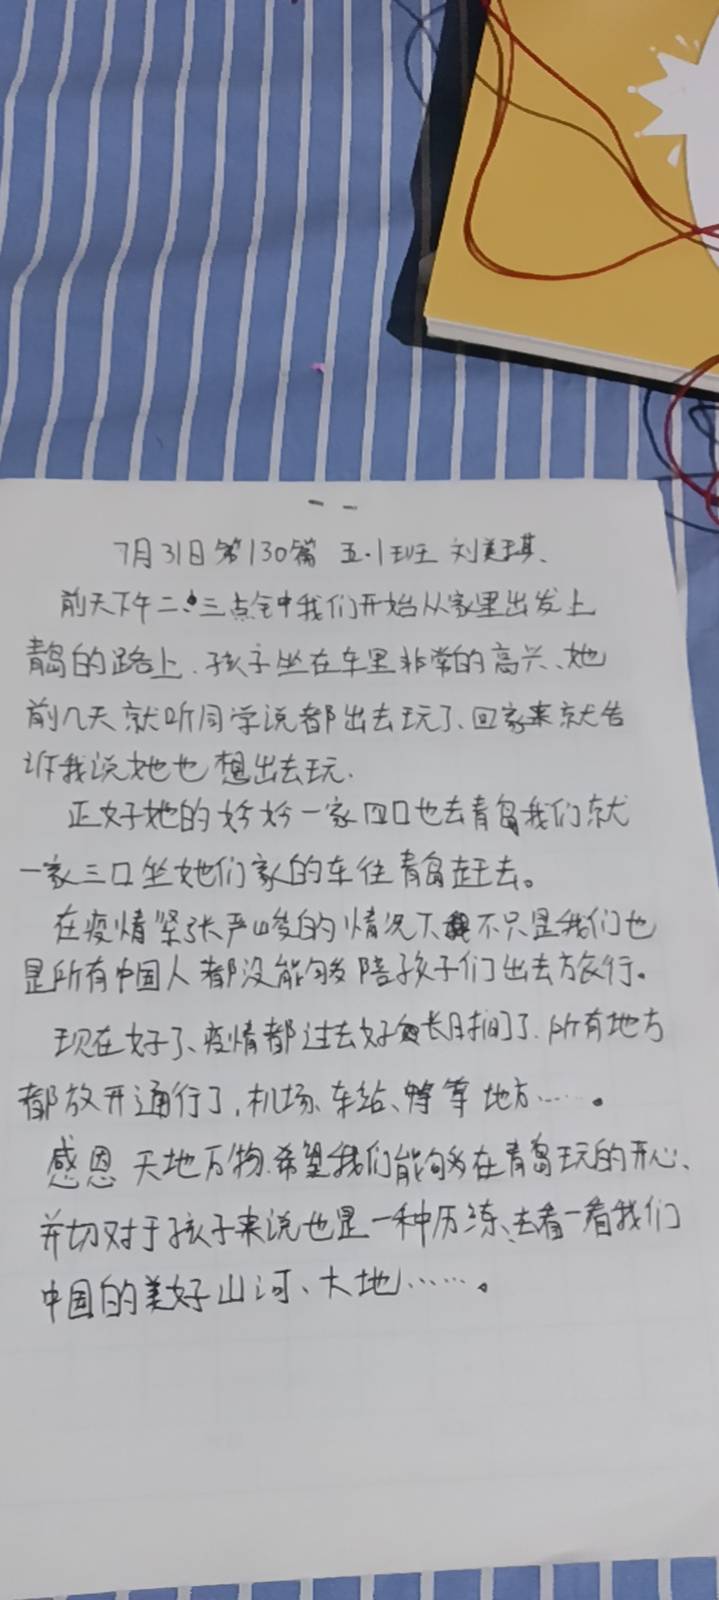 7月31日第130篇 五.1班 刘美琪、
前天下午二、三点钟我们开始从家里出发上
青岛的路上、孩子坐在车里非常的高兴、她
前几天就听同学说都出去玩了、回家来就告
诉我说她也想出去玩.
正好她的妗妗一家四口也去青岛我们就
一家三口坐她们家的车往青岛赶去。
在疫情紧张严峻的情况下不只是我们也
是所有中国人都没能够陪孩子们出去旅行。
现在好了、疫情都过去好长时间了.所有地方
都放开通行了,机场、车站、等地方……。
感恩天地万物.希望我们能够在青岛玩的开心、
并切对于孩子来说也是一种历练、去看一看我们
中国的美好山河、大地……。